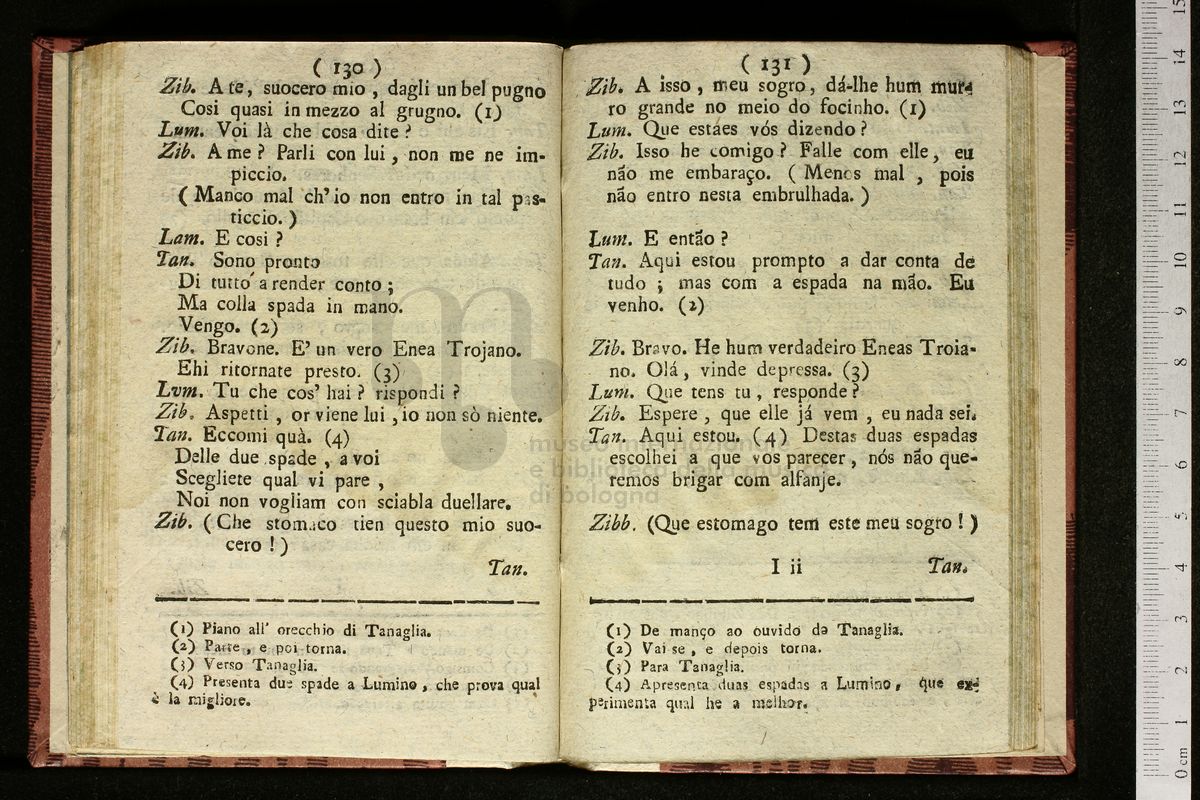 ( 130 )
Zib. A te, suocero mio , dagli un bel pugno
Cosi quasi in mezzo al grugno. (1)
Lum. Voi là che cosa dite ?
Zib. A me ? Parli con lui , non me ne im-
piccio.
( Manco mal ch' io non entro in tal pas-
ticcio. )
Lam. E cosi ?
Tan. Sono pronto
Di tutto a render conto ;
Ma colla spada in mano.
Vengo. (2)
Zib. Bravone. E' un vero Enea Trojano.
Ehi ritornate presto. (3)
Lvm. Tu che cos' hai ? rispondi ?
Zib. Aspetti , or viene lui , io non sò niente.
Tan. Eccomi quà. (4)
Delle due spade , a voi
Scegliete qual vi pare ,
Noi non vogliam con sciabla duellare.
Zib. ( Che stomaco tien questo mio suo-
cero ! )
Tan.
(1) Piano all' orecchio di Tanaglia.
(2) Parte , e poi torna.
(3) Verso Tanaglia.
(4) Presenta due spade a Lumino , che prova qual
è la migliore.
( 131 )
Zib. A isso , meu sogro , dá-lhe hum mur-
ro grande no meio do focinho. (1)
Lum. Que estáes vós dizendo ?
Zib. Isso he comigo ? Falle com elle , eu
não me embaraço. ( Menos mal , pois
não entro nesta embrulhada. )
Lum. E então ?
Tan. Aqui estou prompto a dar conta de
tudo ; mas com a espada na mão. Eu
venho. (2)
Zib. Bravo. He hum verdadeiro Eneas Troia-
no. Olá , vinde depressa. (3)
Lum. Que tens tu , responde ?
Zib. Espere , que elle já vem , eu nada sei.
Tan. Aqui estou. (4) Destas duas espadas
escolhei a que vos parecer , nós não que-
remos brigar com alfanje.
Zibb. (Que estomago tem este meu sogro ! )
I ii Tan.
(1) De manço ao ouvido da Tanaglia.
(2) Vai se , e depois torna.
(3) Para Tanaglia.
(4) Apresenta duas espadas a Lumino , que ex-
perimenta qual he a melhor.
museo internazionale
e biblioteca della musica
di bologna
0 cm 1 2 3 4 5 6 7 8 9 10 11 12 13 14 15